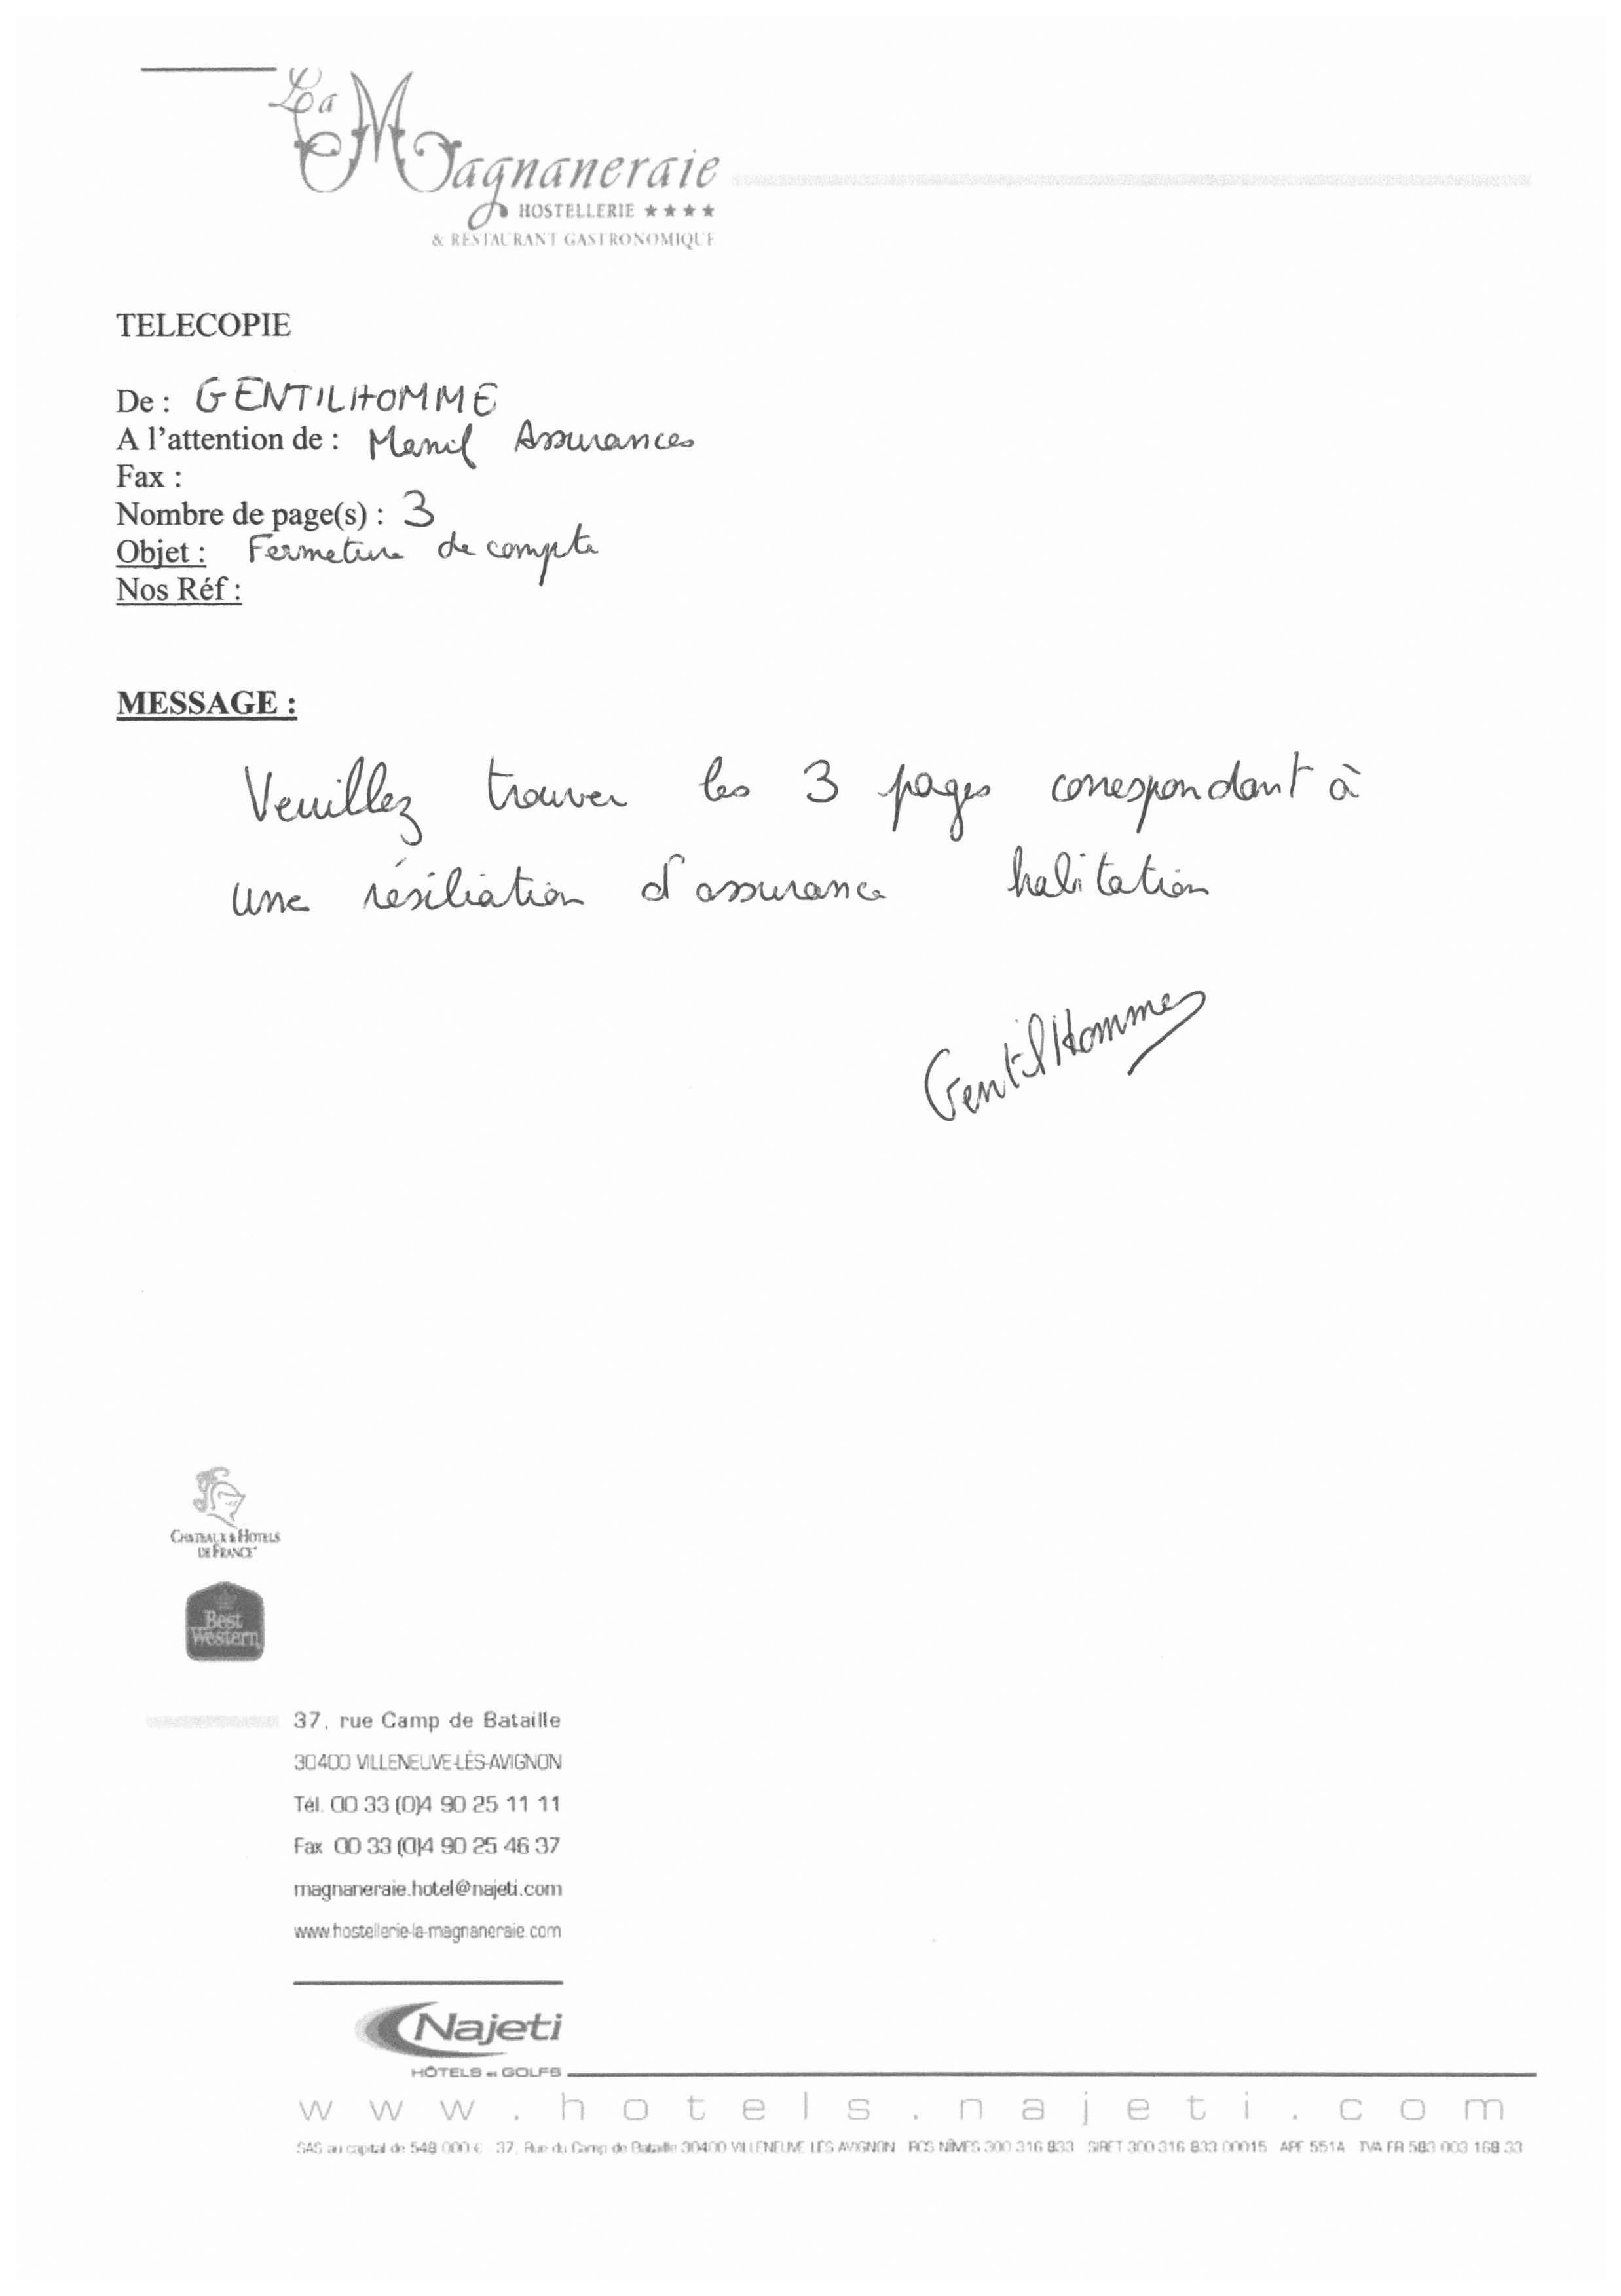 La Magnaneraie
HOSTELLERIE ★★★★
& RESTAURANT GASTRONOMIQUE
TELECOPIE
De : GENTILHOMME
A l'attention de : Manil Assurances
Fax :
Nombre de page(s) : 3
Objet : Fermeture de compte
Nos Réf :
MESSAGE :
Veuillez trouver les 3 pages correspondant à
une résiliation d'assurance habitation
GentilHomme
CHATEAUX & HOTELS
DE FRANCE
Best
Western
37, rue Camp de Bataille
30400 VILLENEUVE-LÈS-AVIGNON
Tél. 00 33 (0)4 90 25 11 11
Fax 00 33 (0)4 90 25 46 37
magnaneraie.hotel@najeti.com
www.hostellerie-la-magnaneraie.com
Najeti
HÔTELS et GOLFS
www.hotels.najeti.com
SAS au capital de 548 000 € 37, Rue du Camp de Bataille 30400 VILLENEUVE LES AVIGNON RCS NÎMES 300 316 833 SIRET 300 316 833 00015 APE 551A TVA FR 583 003 168 33